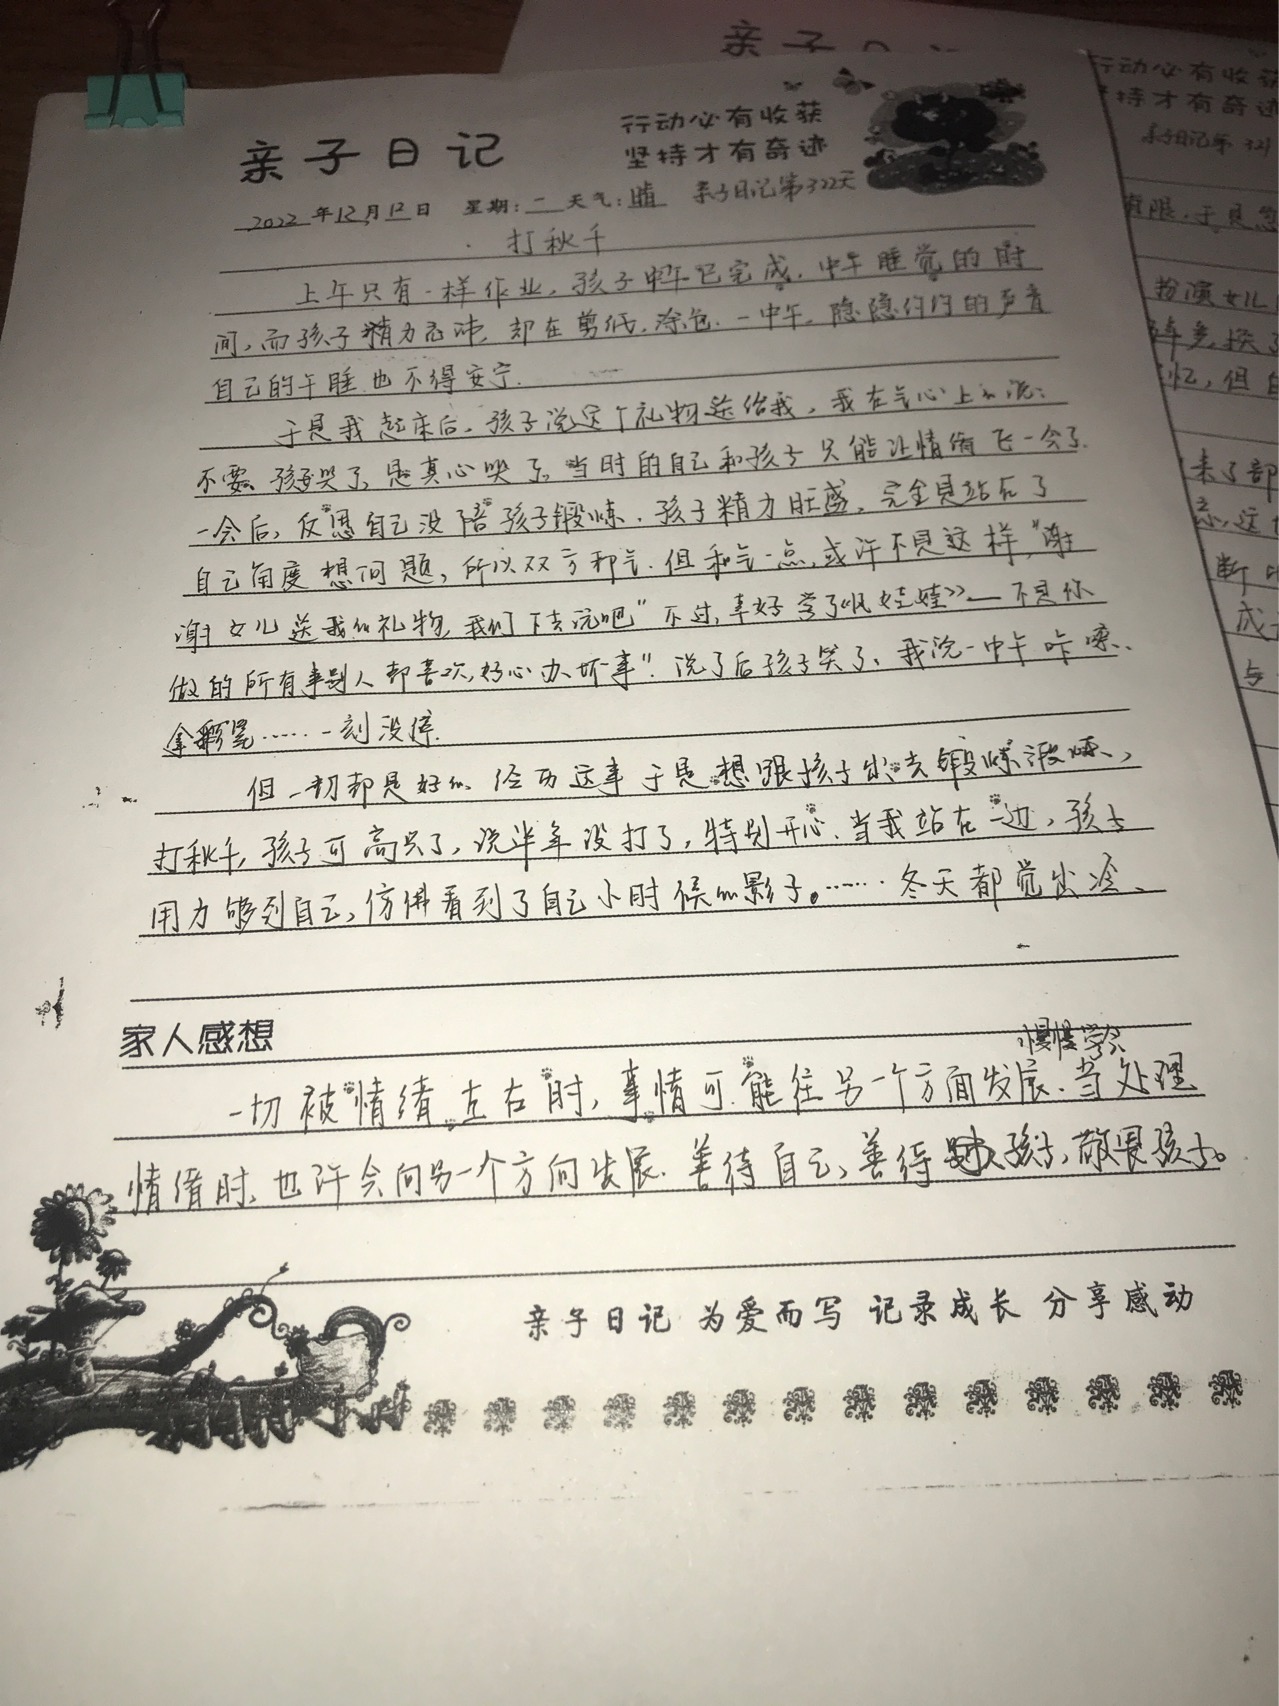 亲子日记
行动必有收获
坚持才有奇迹
2022年12月12日 星期:二 天气:晴 亲子日记第322天
打秋千
上午只有一样作业，孩子中午已完成．中午睡觉的时
间，而孩子精力 却在剪纸，涂色．一中午，隐隐约约的声音
自己的午睡也不得安宁．
于是我起床后，孩子说这个礼物送给我，我在气心上 说：
不要．孩子哭了，是真心哭了．当时的自己和孩子只能让情绪飞一会了．
一会后，反思自己没陪孩子锻炼．孩子精力旺盛，完全是站在了
自己角度想问题，所以双方都气．但和气一点，或许不是这样，“谢
谢女儿送我的礼物，我们下去玩吧”不过，幸好 娃娃》— 不是你
做的所有事别人都喜欢，好心办坏事”．说了后孩子笑了．我说一中午咔嚓．
拿 ……一刻没停．
但一切都是好的．经历这事于是想跟孩子出去锻炼锻炼，
打秋千，孩子可高兴了，说半年没打了，特别开心．当我站在一边，孩子
用力够到自己，仿佛看到了自己小时候的影子。……冬天都觉出冷．
家人感想
慢慢学会
一切被情绪左右时，事情可能往另一个方面发展．当处理
情绪时，也许会向另一个方向发展．善待自己，善待 孩子，敬畏孩子。
亲子日记 为爱而写 记录成长 分享感动
亲子日记
行动必有收获
坚持才有奇迹
亲子日记第321
有限．于是
扮演女儿
忆，但自
来了部
断
成
与